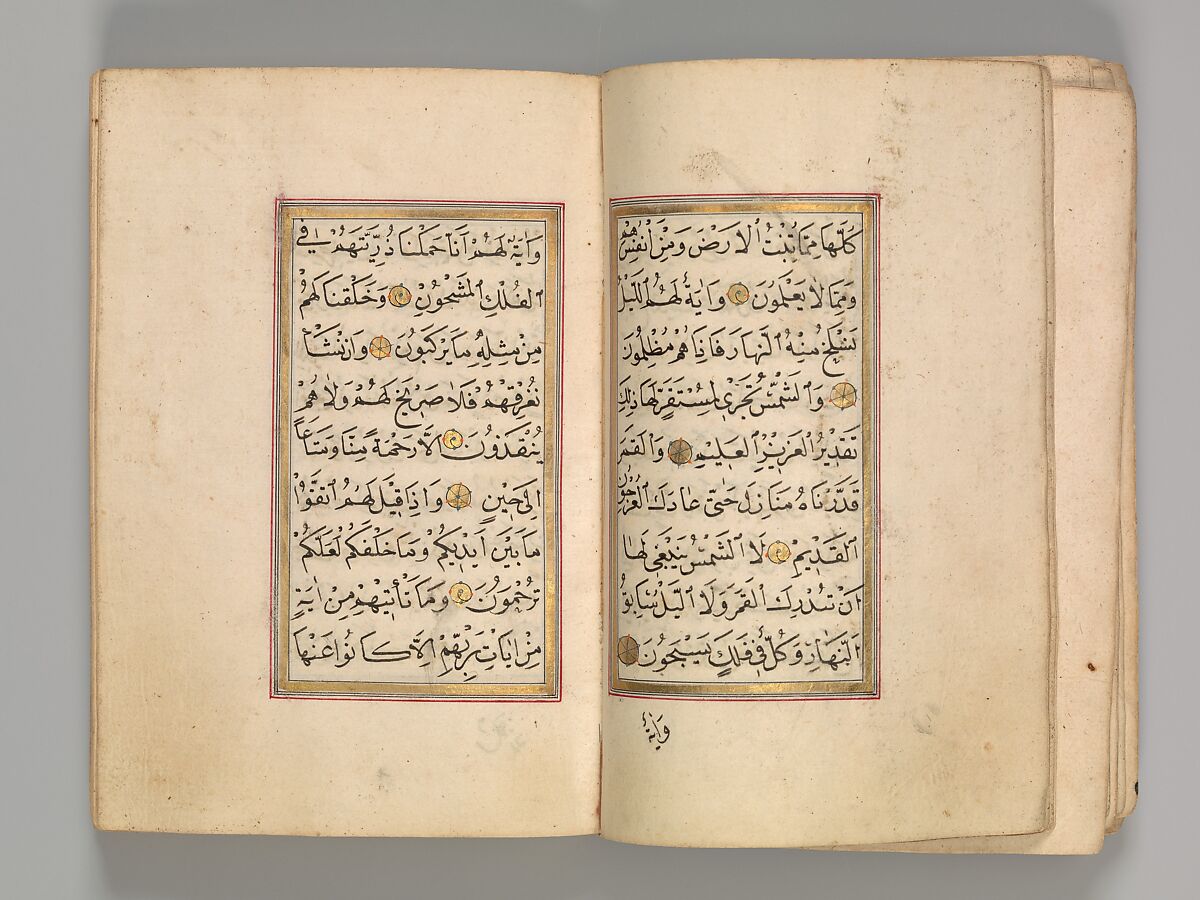 كُلَّهَا مِمَّا تُنْبِتُ الْاَرْضُ وَمِنْ اَنْفُسِهِمْ
وَمِمَّا لَا يَعْلَمُونَ وَاٰيَةٌ لَهُمُ الَّيْلُ
نَسْلَخُ مِنْهُ النَّهَارَ فَاِذَا هُمْ مُظْلِمُونَ
وَالشَّمْسُ تَجْرِي لِمُسْتَقَرٍّ لَهَا ذٰلِكَ
تَقْدِيرُ الْعَزِيزِ الْعَلِيمِ وَالْقَمَرَ
قَدَّرْنَاهُ مَنَازِلَ حَتّٰى عَادَ كَالْعُرْجُونِ
الْقَدِيمِ لَا الشَّمْسُ يَنْبَغِي لَهَا
اَنْ تُدْرِكَ الْقَمَرَ وَلَا الَّيْلُ سَابِقُ
النَّهَارِ وَكُلٌّ فِي فَلَكٍ يَسْبَحُونَ
وَاٰيَةٌ
وَاٰيَةٌ لَهُمْ اَنَّا حَمَلْنَا ذُرِّيَّتَهُمْ فِي
الْفُلْكِ الْمَشْحُونِ وَخَلَقْنَا لَهُمْ
مِنْ مِثْلِهِ مَا يَرْكَبُونَ وَاِنْ نَشَأْ
نُغْرِقْهُمْ فَلَا صَرِيخَ لَهُمْ وَلَا هُمْ
يُنْقَذُونَ اِلَّا رَحْمَةً مِنَّا وَمَتَاعًا
اِلٰى حِينٍ وَاِذَا قِيلَ لَهُمُ اتَّقُوا
مَا بَيْنَ اَيْدِيكُمْ وَمَا خَلْفَكُمْ لَعَلَّكُمْ
تُرْحَمُونَ وَمَا تَأْتِيهِمْ مِنْ اٰيَةٍ
مِنْ اٰيَاتِ رَبِّهِمْ اِلَّا كَانُوا عَنْهَا